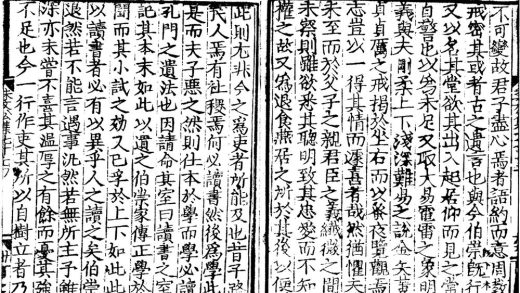 不可變故君子盡心焉者語約而意周教
戒密其或者古之遺言也與今伯崇師行
又以名其堂欲其出入起居仰而見之常
自警思以為未足又取大易雷電之象明
義與夫剛柔上下淺深難易之說金矢黃
貞厲之戒揭於坐石而以蚤夜覽觀焉
志豈以一得其情而遽喜者哉然猶懼夫
未至而於父子之親君臣之義纖微之間
未察則雖欲悉其聰明致其忠愛而不知
權之故又為退食燕居之所於其後以便
此則尤非今之為吏者所能及也昔子路
民人焉有社稷焉何必讀書然後為學此
是而夫子惡之然則仕本於學而學必讀
孔門之遺法也因請命其室曰讀書之室
記其本末如此以遺之伯崇家傳正學於
聞而其小試之效又已孚於上下如此此
以讀書者必有以異乎人之讀之矣伯崇
退然若不能言遇事汎然若無所主予雖
深亦未嘗不喜其溫厚之有餘而憂其強
不足也今一行作吏其所以自樹立者乃